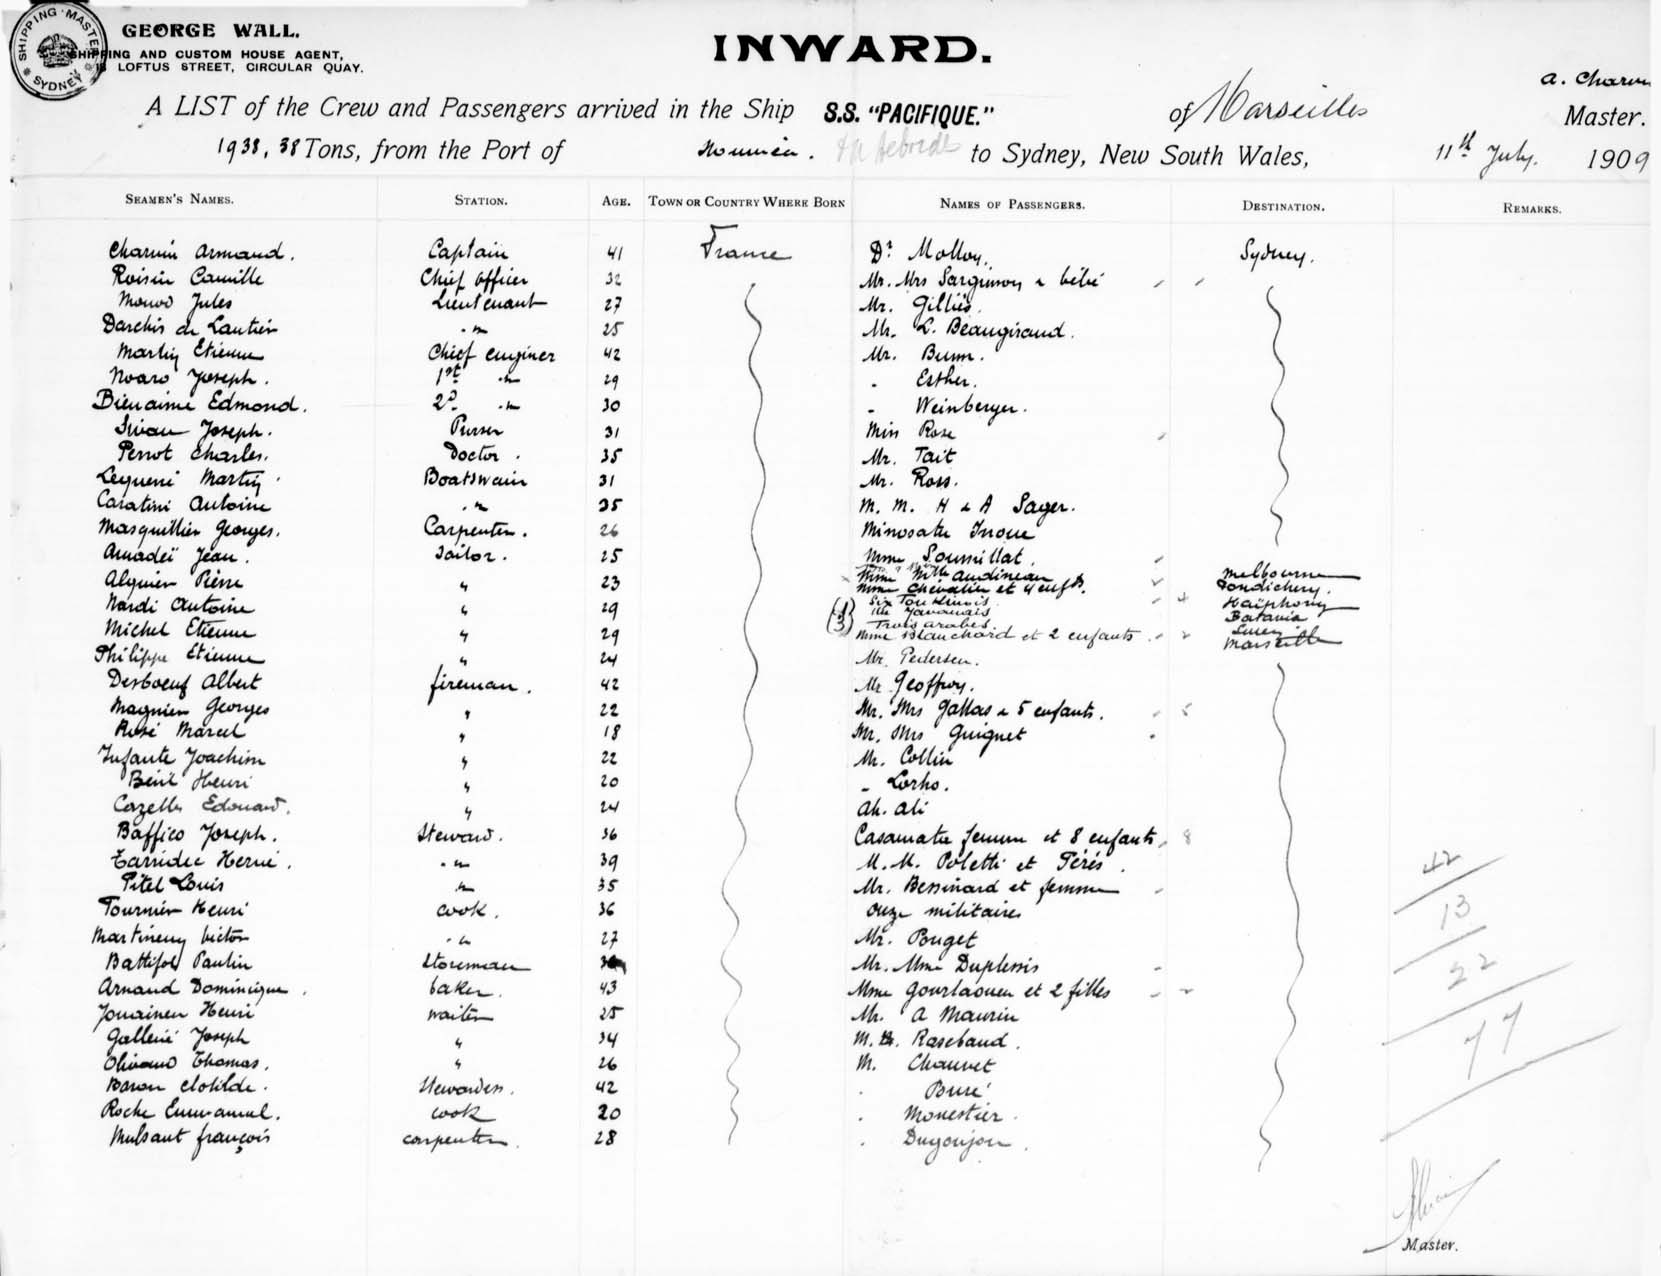 SHIPPING MASTER
SYDNEY
GEORGE WALL.
SHIPPING AND CUSTOM HOUSE AGENT,
LOFTUS STREET, CIRCULAR QUAY.
INWARD.
A LIST of the Crew and Passengers arrived in the Ship S.S. "PACIFIQUE." of Marseilles Master.
1938,38 Tons, from the Port of Noumea. to Sydney, New South Wales, 11th July. 1909
SEAMEN'S NAMES. STATION. AGE. TOWN OR COUNTRY WHERE BORN NAMES OF PASSENGERS. DESTINATION. REMARKS.
Charvin Armand. Captain 41 France Dr Molloy. Sydney.
Roisin Camille Chief officer 32 Mr. Mrs Sarginson & bébé
Jules Lieutenant 27 Mr. Gillies.
Darchis de Lautier " 25 Mr. L. Beaugiraud.
Martin Etienne Chief enginer 42 Mr. Bunn.
Noaro Joseph. 1st " 29 - Esther.
Bienaimé Edmond. 2d " 30 - Weinberger.
Joseph. Purser 31 Miss Rose
Perrot Charles. Doctor. 35 Mr. Tait
Martin Boatswain 31 Mr. Ross.
Caratini Antoine " 35 M. M. H & A Sager.
Masquillier Georges. Carpenter. 26 Minosake Inoue
Amadeï Jean. Sailor. 25 Mme Soumillat.
Mme Mlle Audineau Melbourne
Alquier Pierre " 23 Mme Chevalier et 4 enfts. Pondichery.
Nardi Antoine " 29 Six Tonkinois Haïphong
Javanais Batavia
(3) Trois arabes.
Michel Etienne " 29 Mme Blanchard et 2 enfants Marseille
Philippe Etienne " 24 Mr. Pedersen.
Desboeuf Albert fireman. 42 Mr Geoffroy.
Magnien Georges " 22 Mr. Mrs Gallas & 5 enfants. 5
Rosé Marcel " 18 Mr. Mrs Guignet
Infante Joachim " 22 Mr. Collin
Henri " 20 - Lorho.
Cazelles Edouard. " 24 Ah. Ali
Baffico Joseph. Steward. 36 Casamatta femme et 8 enfants 8
Tarridec Hervé. " 39 M. M. Poletti et Pérés.
Pitel Louis " 35 Mr. Bessinard et femme
Tournier Henri cook. 36 onze militaires
Martineny Victor " 27 Mr. Pouget
Battifol Paulin Storeman Mr. Mme Duplessis
Arnaud Dominique. baker. 43 Mme Gourlaouen et 2 filles
Jouainen Henri waiter 25 Mr. A Maurin
Joseph " 34 M. Rasebaud.
Thomas. " 26 M. Chauvet
Baron Clotilde. Stewardess. 42 - Buré
Roche Emmanuel. cook 20 - Monestier.
Mulsant françois carpenter. 28 - Dugoujon.
42
13
22
77
Master.